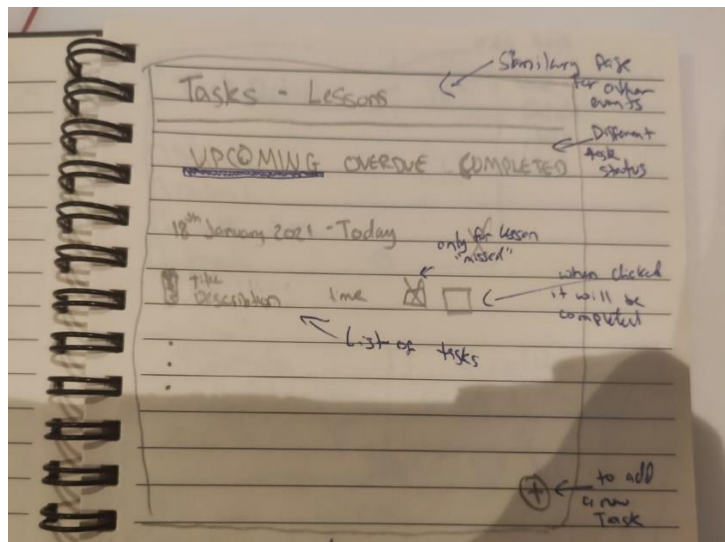 Tasks - Lessons
Similary Page
for other
events
UPCOMING OVERDUE COMPLETED
Different
task
status
18th January 2021 - Today
only for lesson
"missed"
Title
Description time
when clicked
it will be
completed
List of tasks
+
to add
a new
Task